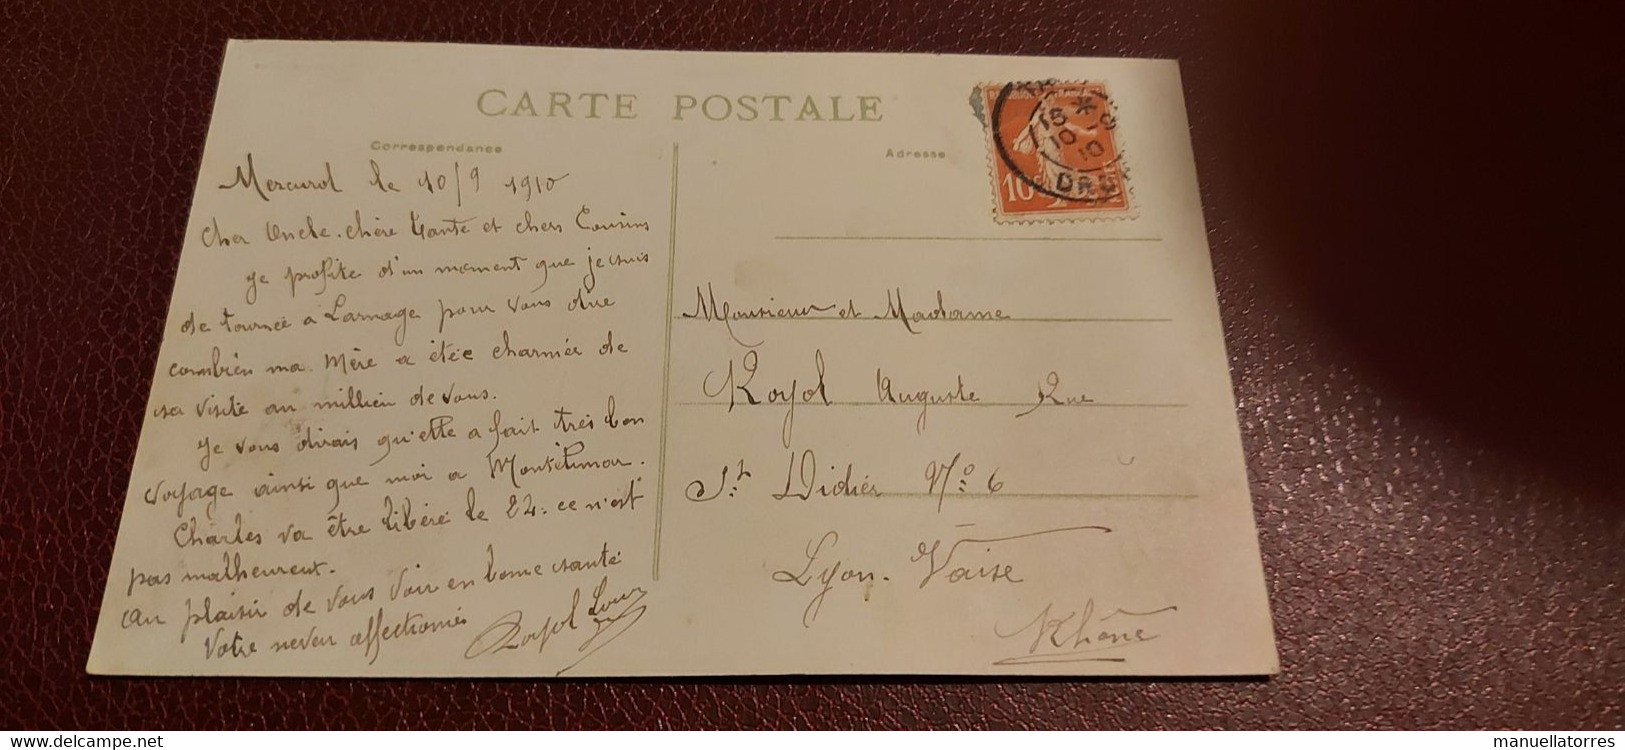 CARTE POSTALE
Correspondance
Adresse
Mercurol le 10/9 1910
Cher Oncle. chère Tante et chers Cousins
je profite d'un moment que je suis
de tournée a Larnage pour vous dire
combien ma Mère a étée charmée de
sa visite au millieu de vous.
Je vous dirais qu'elle a fait très bon
voyage ainsi que moi a Montélimar.
Charles va être libéré le 24. ce n'est
pas malheureut.
au plaisir de vous voir en bonne santé
Votre neveu affectionné
Royol Louis
10c
15 *
10
10
DRÔM
Monsieur et Madame
Royol Auguste Rue
St Didier No 6
Lyon. Vaise
Rhône
www.delcampe.net
manuellatorres